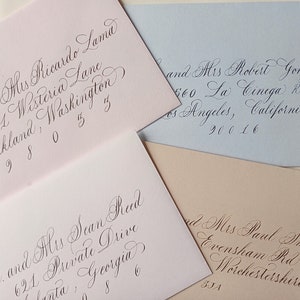 Mrs Ricardo Lama
Wisteria Lane
Washington
98055
and Mrs Robert
La Cinega
Los Angeles, California
90016
and Mrs Sean Reed
621 Private Drive
Georgia
and Mrs Paul
Evensham Rd
Worchestershire